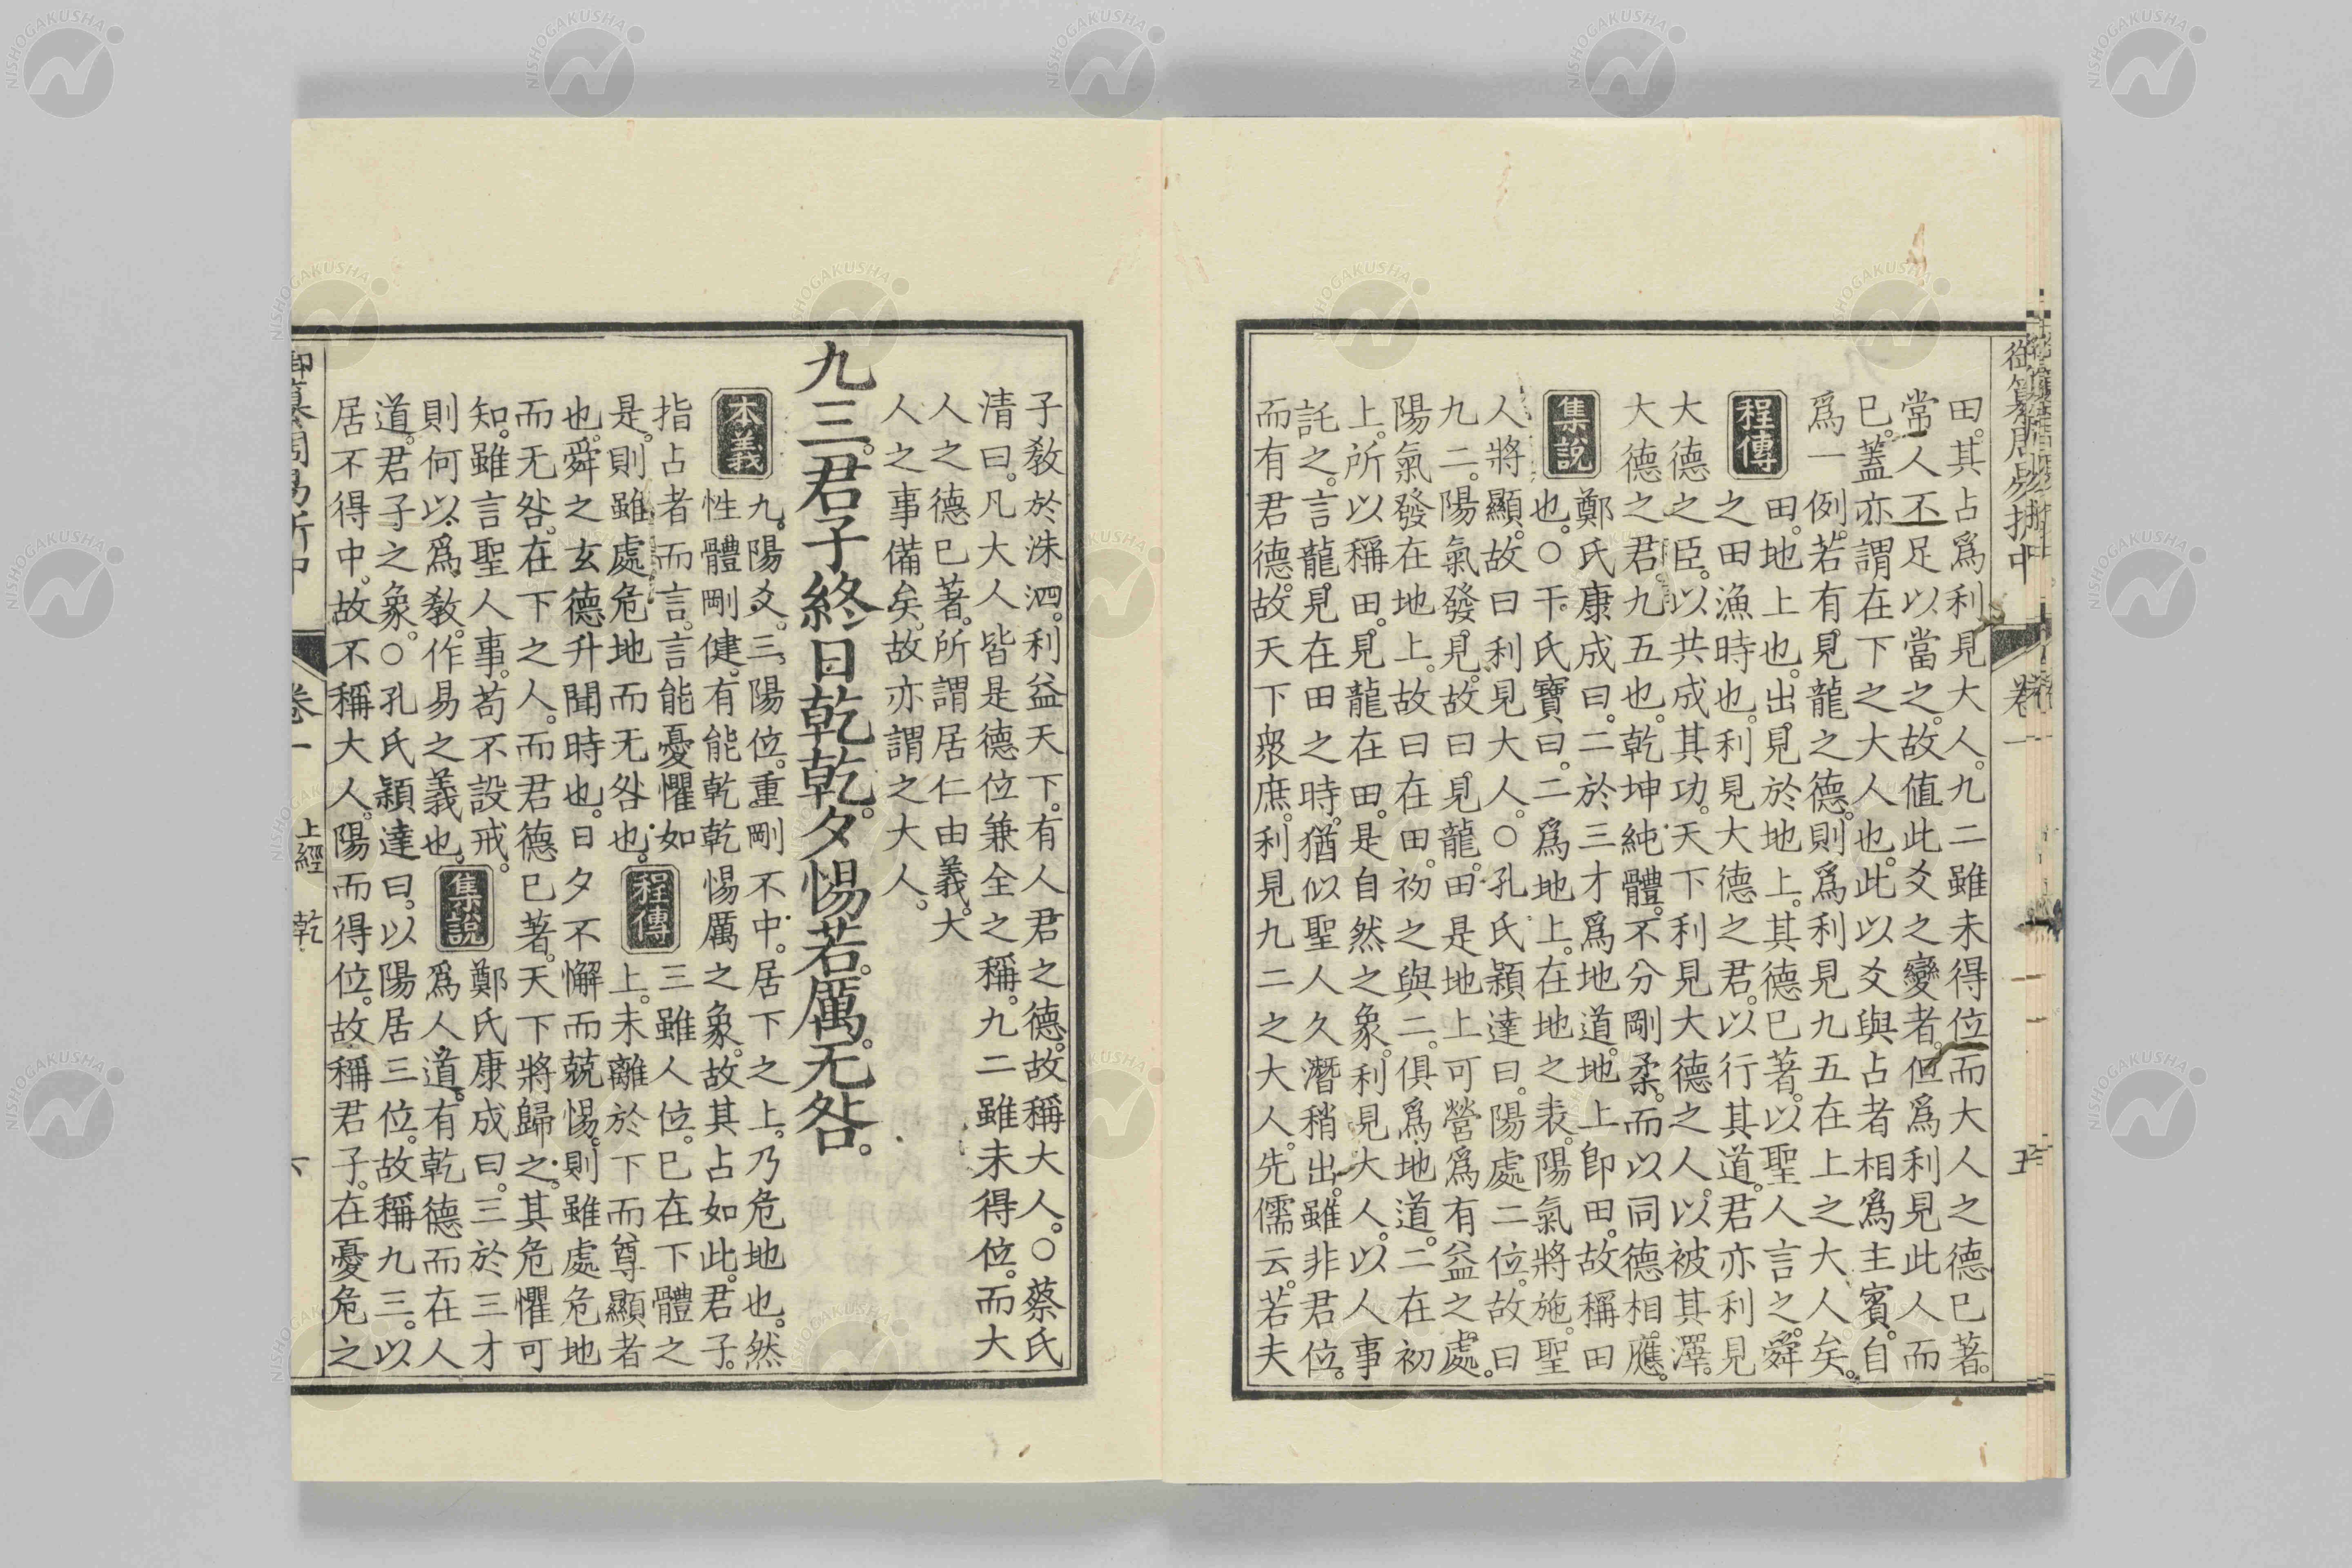 御纂周易折中 卷一
田。其占爲利見大人。九二雖未得位而大人之德已著。
常人不足以當之。故值此爻之變者。但爲利見此人而
已。蓋亦謂在下之大人也。此以爻與占者相爲主賓。自
爲一例。若有見龍之德。則爲利見九五在上之大人矣。
程傳
田。地上也。出見於地上。其德已著。以聖人言之。舜
之田漁時也。利見大德之君。以行其道。君亦利見
大德之臣。以共成其功。天下利見大德之人。以被其澤。
大德之君九五也。乾坤純體。不分剛柔。而以同德相應。
集說
鄭氏康成曰。二於三才爲地道。地上卽田。故稱田
也。○干氏寶曰。二爲地上。在地之表。陽氣將施。聖
人將顯。故曰利見大人。○孔氏穎達曰。陽處二位。故曰
九二。陽氣發見。故曰見龍。田是地上可營爲有益之處。
陽氣發在地上。故曰在田。初之與二。俱爲地道。二在初
上。所以稱田。見龍在田。是自然之象。利見大人。以人事
託之。言龍見在田之時。猶似聖人久潛稍出。雖非君位。
而有君德。故天下衆庶。利見九二之大人。先儒云。若夫
子敎於洙泗。利益天下。有人君之德。故稱大人。○蔡氏
清曰。凡大人皆是德位兼全之稱。九二雖未得位。而大
人之德已著。所謂居仁由義。大
人之事備矣。故亦謂之大人。
九三。君子終日乾乾。夕惕若。厲。无咎。
本義
九。陽爻。三。陽位。重剛不中。居下之上。乃危地也。然
性體剛健。有能乾乾惕厲之象。故其占如此。君子。
指占者而言。言能憂懼如
是。則雖處危地而无咎也。
程傳
三雖人位。已在下體之
上。未離於下而尊顯者
也。舜之玄德升聞時也。日夕不懈而兢惕。則雖處危地
而无咎。在下之人。而君德已著。天下將歸之。其危懼可
知。雖言聖人事。苟不設戒。
則何以爲敎。作易之義也。
集說
鄭氏康成曰。三於三才
爲人道。有乾德而在人
道。君子之象。○孔氏穎達曰。以陽居三位。故稱九三。以
居不得中。故不稱大人。陽而得位。故稱君子。在憂危之
御纂周易折中 卷一 上經 乾